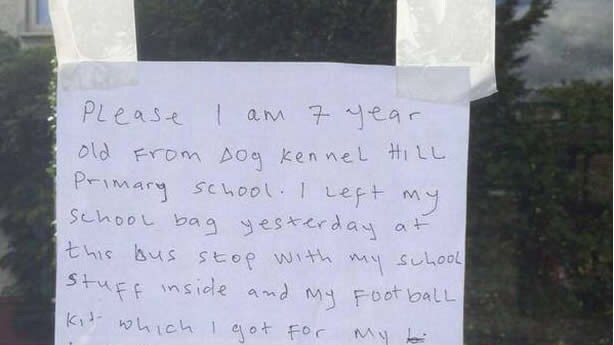 Please I am 7 year
old From Dog Kennel Hill
Primary school. I Left my
school bag yesterday at
this bus stop with my school
stuff inside and my Football
Kit which I got for my